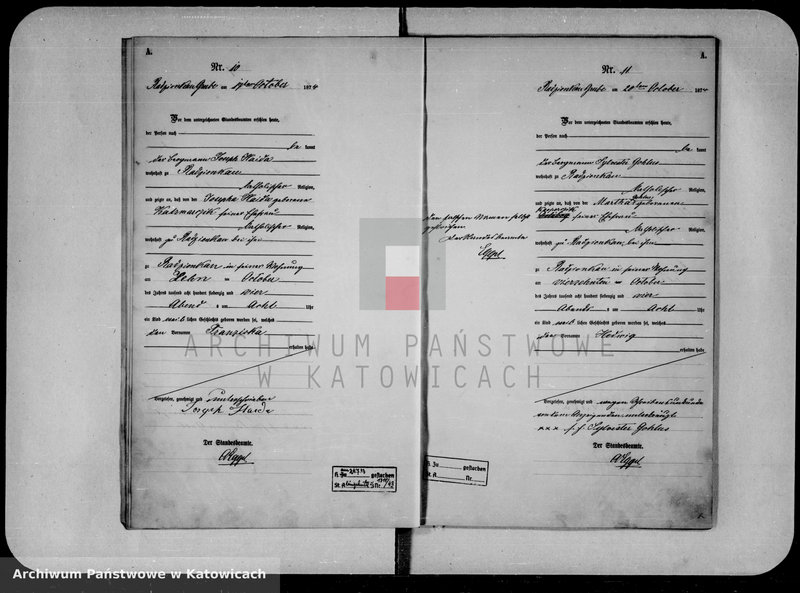 A.
Nr. 10
Radzionkau Grube am 19ten October 1874
Vor dem unterzeichneten Standesbeamten erschien heute,
der Person nach
be kannt
der Bergmann Joseph Haida
wohnhaft zu Radzionkau
katholischer Religion,
und zeigte an, daß von der Josepha Haida geborenen
Kaczmarczyk seiner Ehefrau
katholischer Religion,
wohnhaft zu Radzionkau bei ihm
zu Radzionkau in seiner Wohnung
am Zehn ten October
des Jahres tausend acht hundert siebenzig und vier
Abend s um Acht Uhr
ein Kind weib lichen Geschlechts geboren worden sei, welches
den Vornamen Franziska
erhalten habe
Vorgelesen, genehmigt und unterschrieben
Joseph Haida
Der Standesbeamte.
Eggel
gestorben
St. A. Nr.
den falschen Namen selbst
gestrichen
Der Standesbeamte
Eggel
A.
Nr. 11
Radzionkau Grube am 20ten October 1874
Vor dem unterzeichneten Standesbeamten erschien heute,
der Person nach
be kannt
der Bergmann Sylvester Gohlus
wohnhaft zu Radzionkau
katholischer Religion,
und zeigte an, daß von der Martha geborenen
seiner Ehefrau
katholischer Religion,
wohnhaft zu Radzionkau bei ihm
zu Radzionkau in seiner Wohnung
am vierzehnten October
des Jahres tausend acht hundert siebenzig und vier
Abends um Acht Uhr
ein Kind weib lichen Geschlechts geboren worden sei, welches
den Vornamen Hedwig
erhalten habe
Vorgelesen, genehmigt und wegen Schreibensunkunde
von dem Anzeigenden unterkreuzt
xxx Sylvester Gohlus
Der Standesbeamte.
Eggel
gestorben
St. A. Nr.
ARCHIWUM PAŃSTWOWE
W KATOWICACH
Archiwum Państwowe w Katowicach